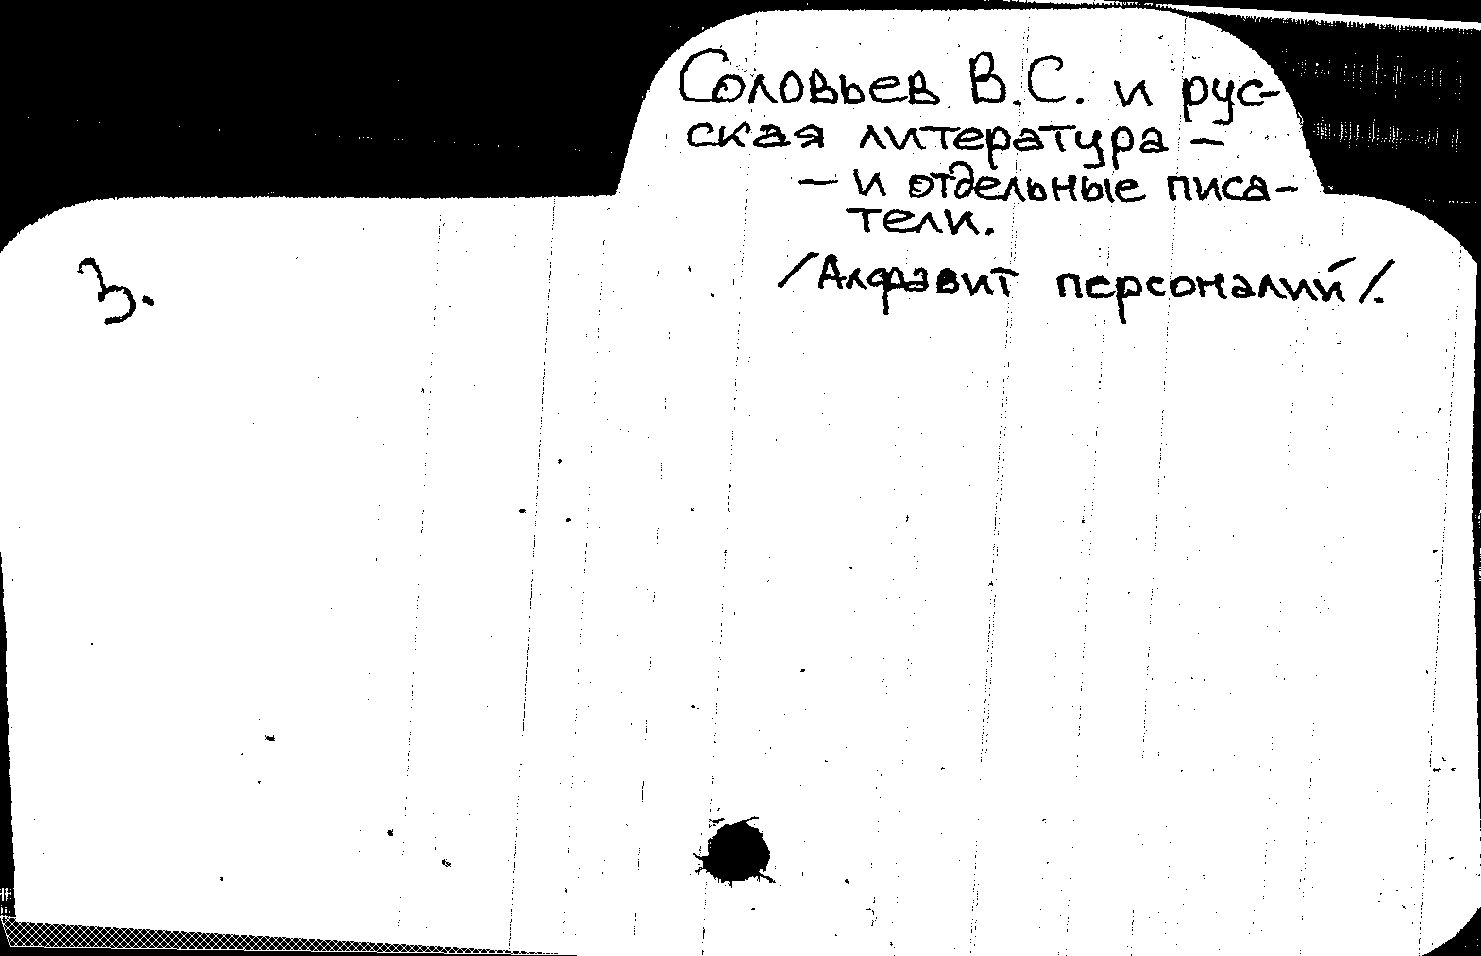 Соловьев В.С. и рус-
ская литература —
— и отдельные писа-
тели.
/Алфавит персоналий/.
3.